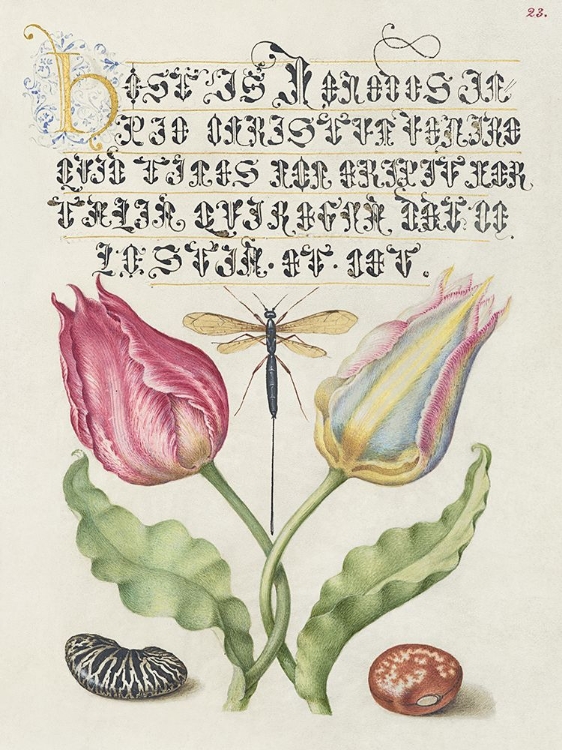 23.
HOSTIS HERODES IM
PIE CHRISTVM VENIRE
QVID TIMES NON ERIPIT MOR
TALIA, QVI REGNA DAT COE
LESTIA. ET. CET.